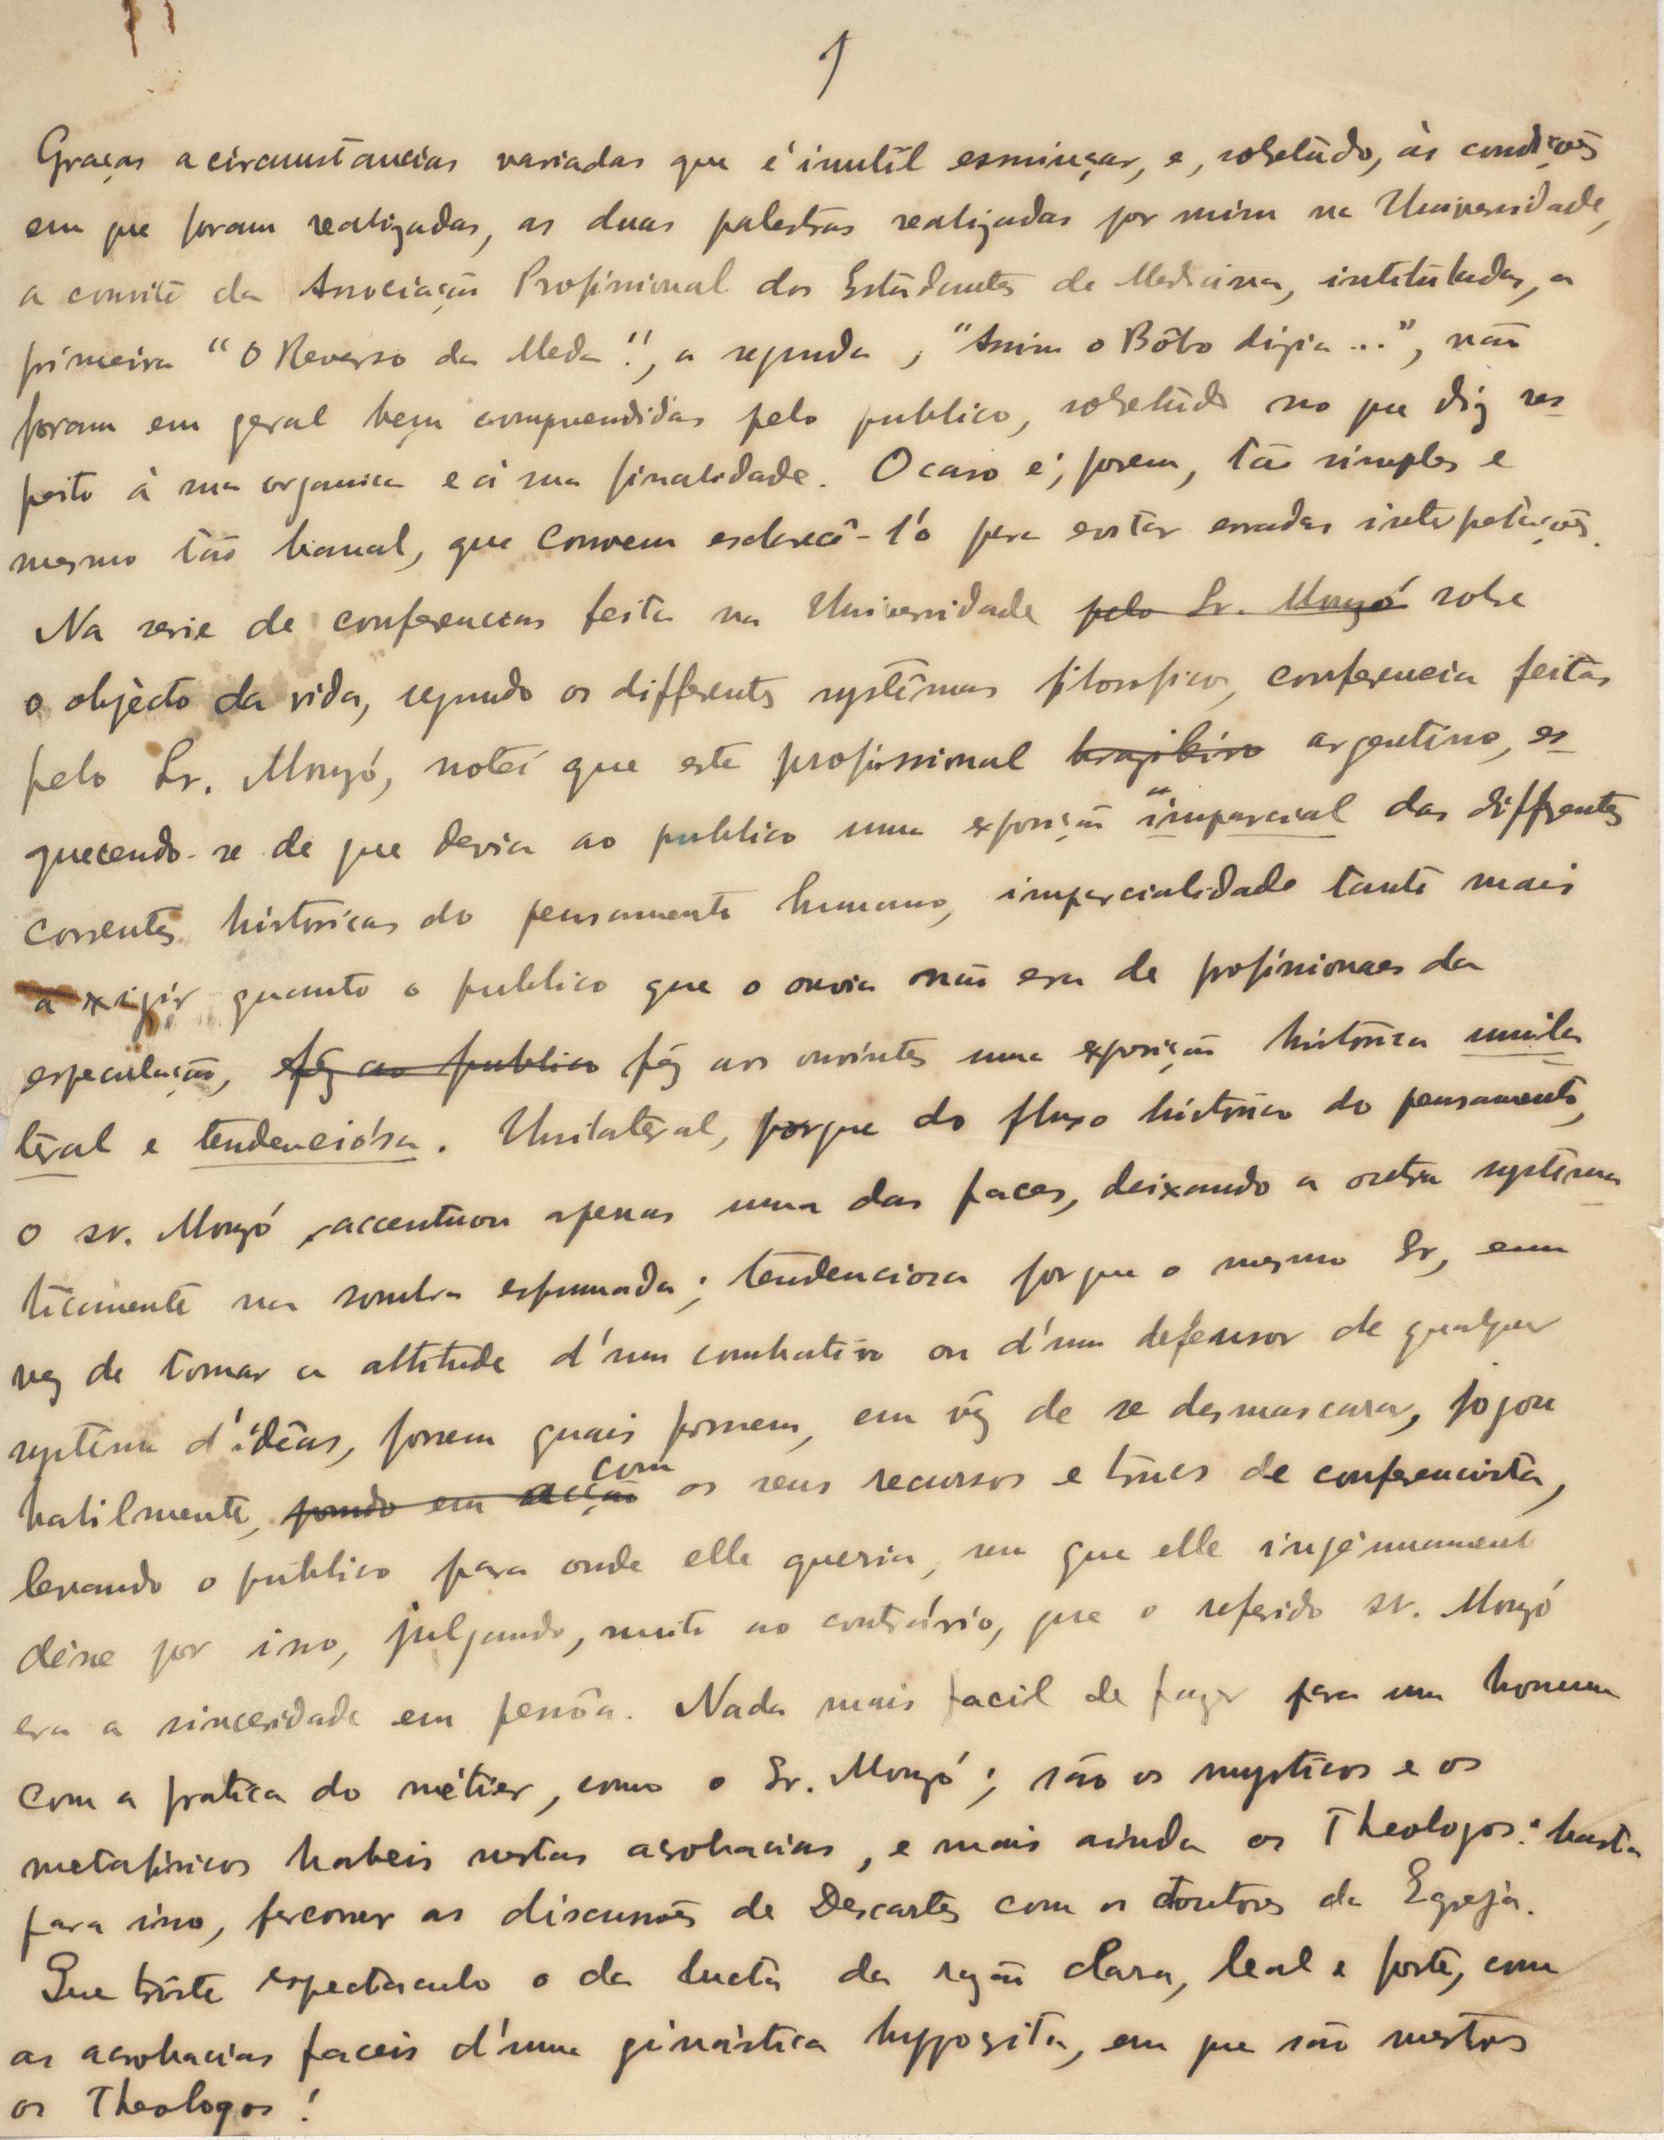 1
Graças a circumstancias variadas que é inutil esmiuçar, e, sobretudo, ás condições
em que foram realizadas, as duas palestras realizadas por mim na Universidade,
a convite da Associação Profissional dos Estudantes de Medicina, intituladas, a
primeira "O Reverso da Meda.", a segunda, "Assim o Bôbo dizia...", não
foram em geral bem comprendidas pelo publico, sobretudo no que diz res-
peito à sua organica e á sua finalidade. O caso é, porem, tão simples e
mesmo tão banal, que convem esclarecê-l'o para evitar erradas interpetações.
Na serie de conferencias feita na Universidade pelo Sr. Monzó sobre
o objècto da vida, segundo os differentes systêmas filosoficos, conferencia feitas
pelo Sr. Monzó, notei que este profissional brazileiro argentino, es-
quecendo-se de que devia ao publico uma exposição "imparcial das differentes
correntes históricas do pensamento humano, imparcialidade tanto mais
a exigir quanto o publico que o ouvia não era de profissionaes da
especulação, fez ao publico fez aos ouvintes uma exposição histórica unila-
teral e tendenciósa. Unilateral, porque do fluxo histórico do pensamento,
o sr. Monzó accentuou apenas uma das faces, deixando a outra systêma-
ticamente na sombra esfumada; tendenciosa porque o mesmo Sr, em
vez de tomar a attitude d'um combativo ou d'um defensor de qualquer
systêma d'idêas, fossem quais fossem, em vêz de se desmascarar, jogou
habilmente, pondo em acção com os seus recursos e trucs de conferencista,
levando o público para onde elle queria, sem que elle ingénuament
désse por isso, julgando, muito ao contrário, que o referido sr. Monzó
era a sinceridade em pessôa. Nada mais facil de fazer para um homem
com a pratica do métier, como o Sr. Monzó; são os mysticos e os
metafísicos habeis nestas acrobacias, e mais ainda os Theologos: basta
para isso, percorrer as discussões de Descartes com os doutores da Egreja.
Que triste espectaculo o da lucta da razão clara, leal e forte, com
as acrobacias faceis d'uma ginástica hyppocrita, em que são mestres
os Theologos!